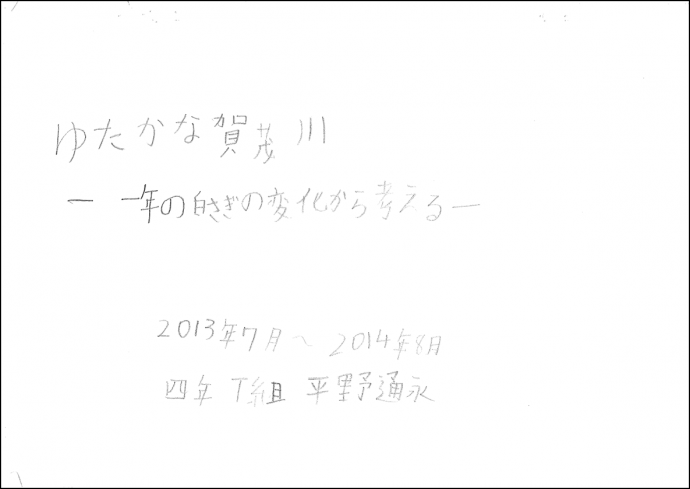 ゆたかな賀茂川
― 一年の白さぎの変化から考える ―
2013年7月～2014年8月
四年T組 平野通永